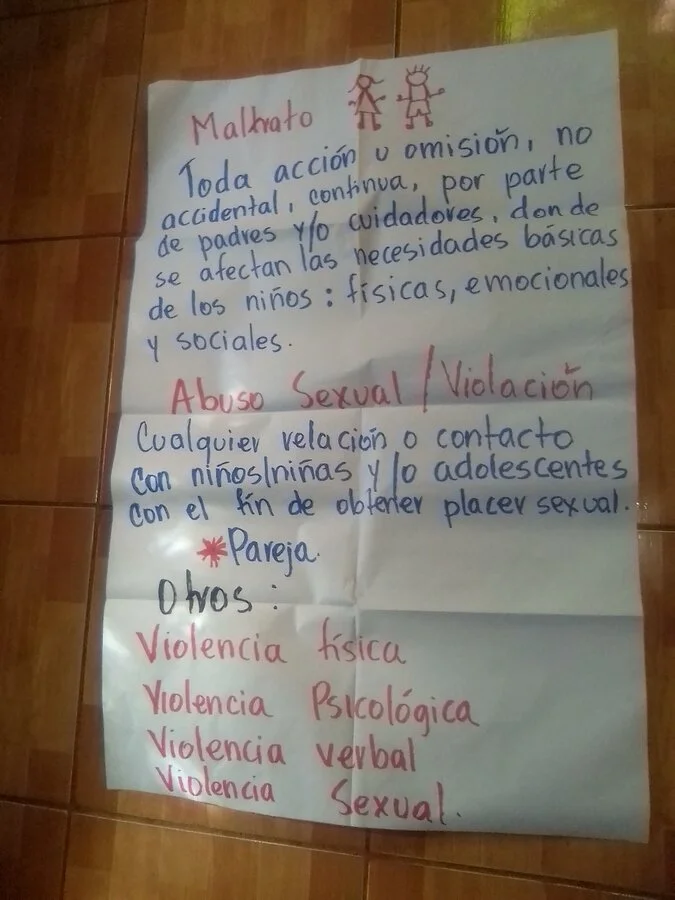 Maltrato
Toda acción u omisión, no
accidental, continua, por parte
de padres y/o cuidadores, donde
se afectan las necesidades básicas
de los niños: físicas, emocionales
y sociales.
Abuso Sexual / Violación
Cualquier relación o contacto
con niños/niñas y/o adolescentes
con el fin de obtener placer sexual.
*Pareja.
Otros:
Violencia física
Violencia Psicológica
Violencia verbal
Violencia Sexual.